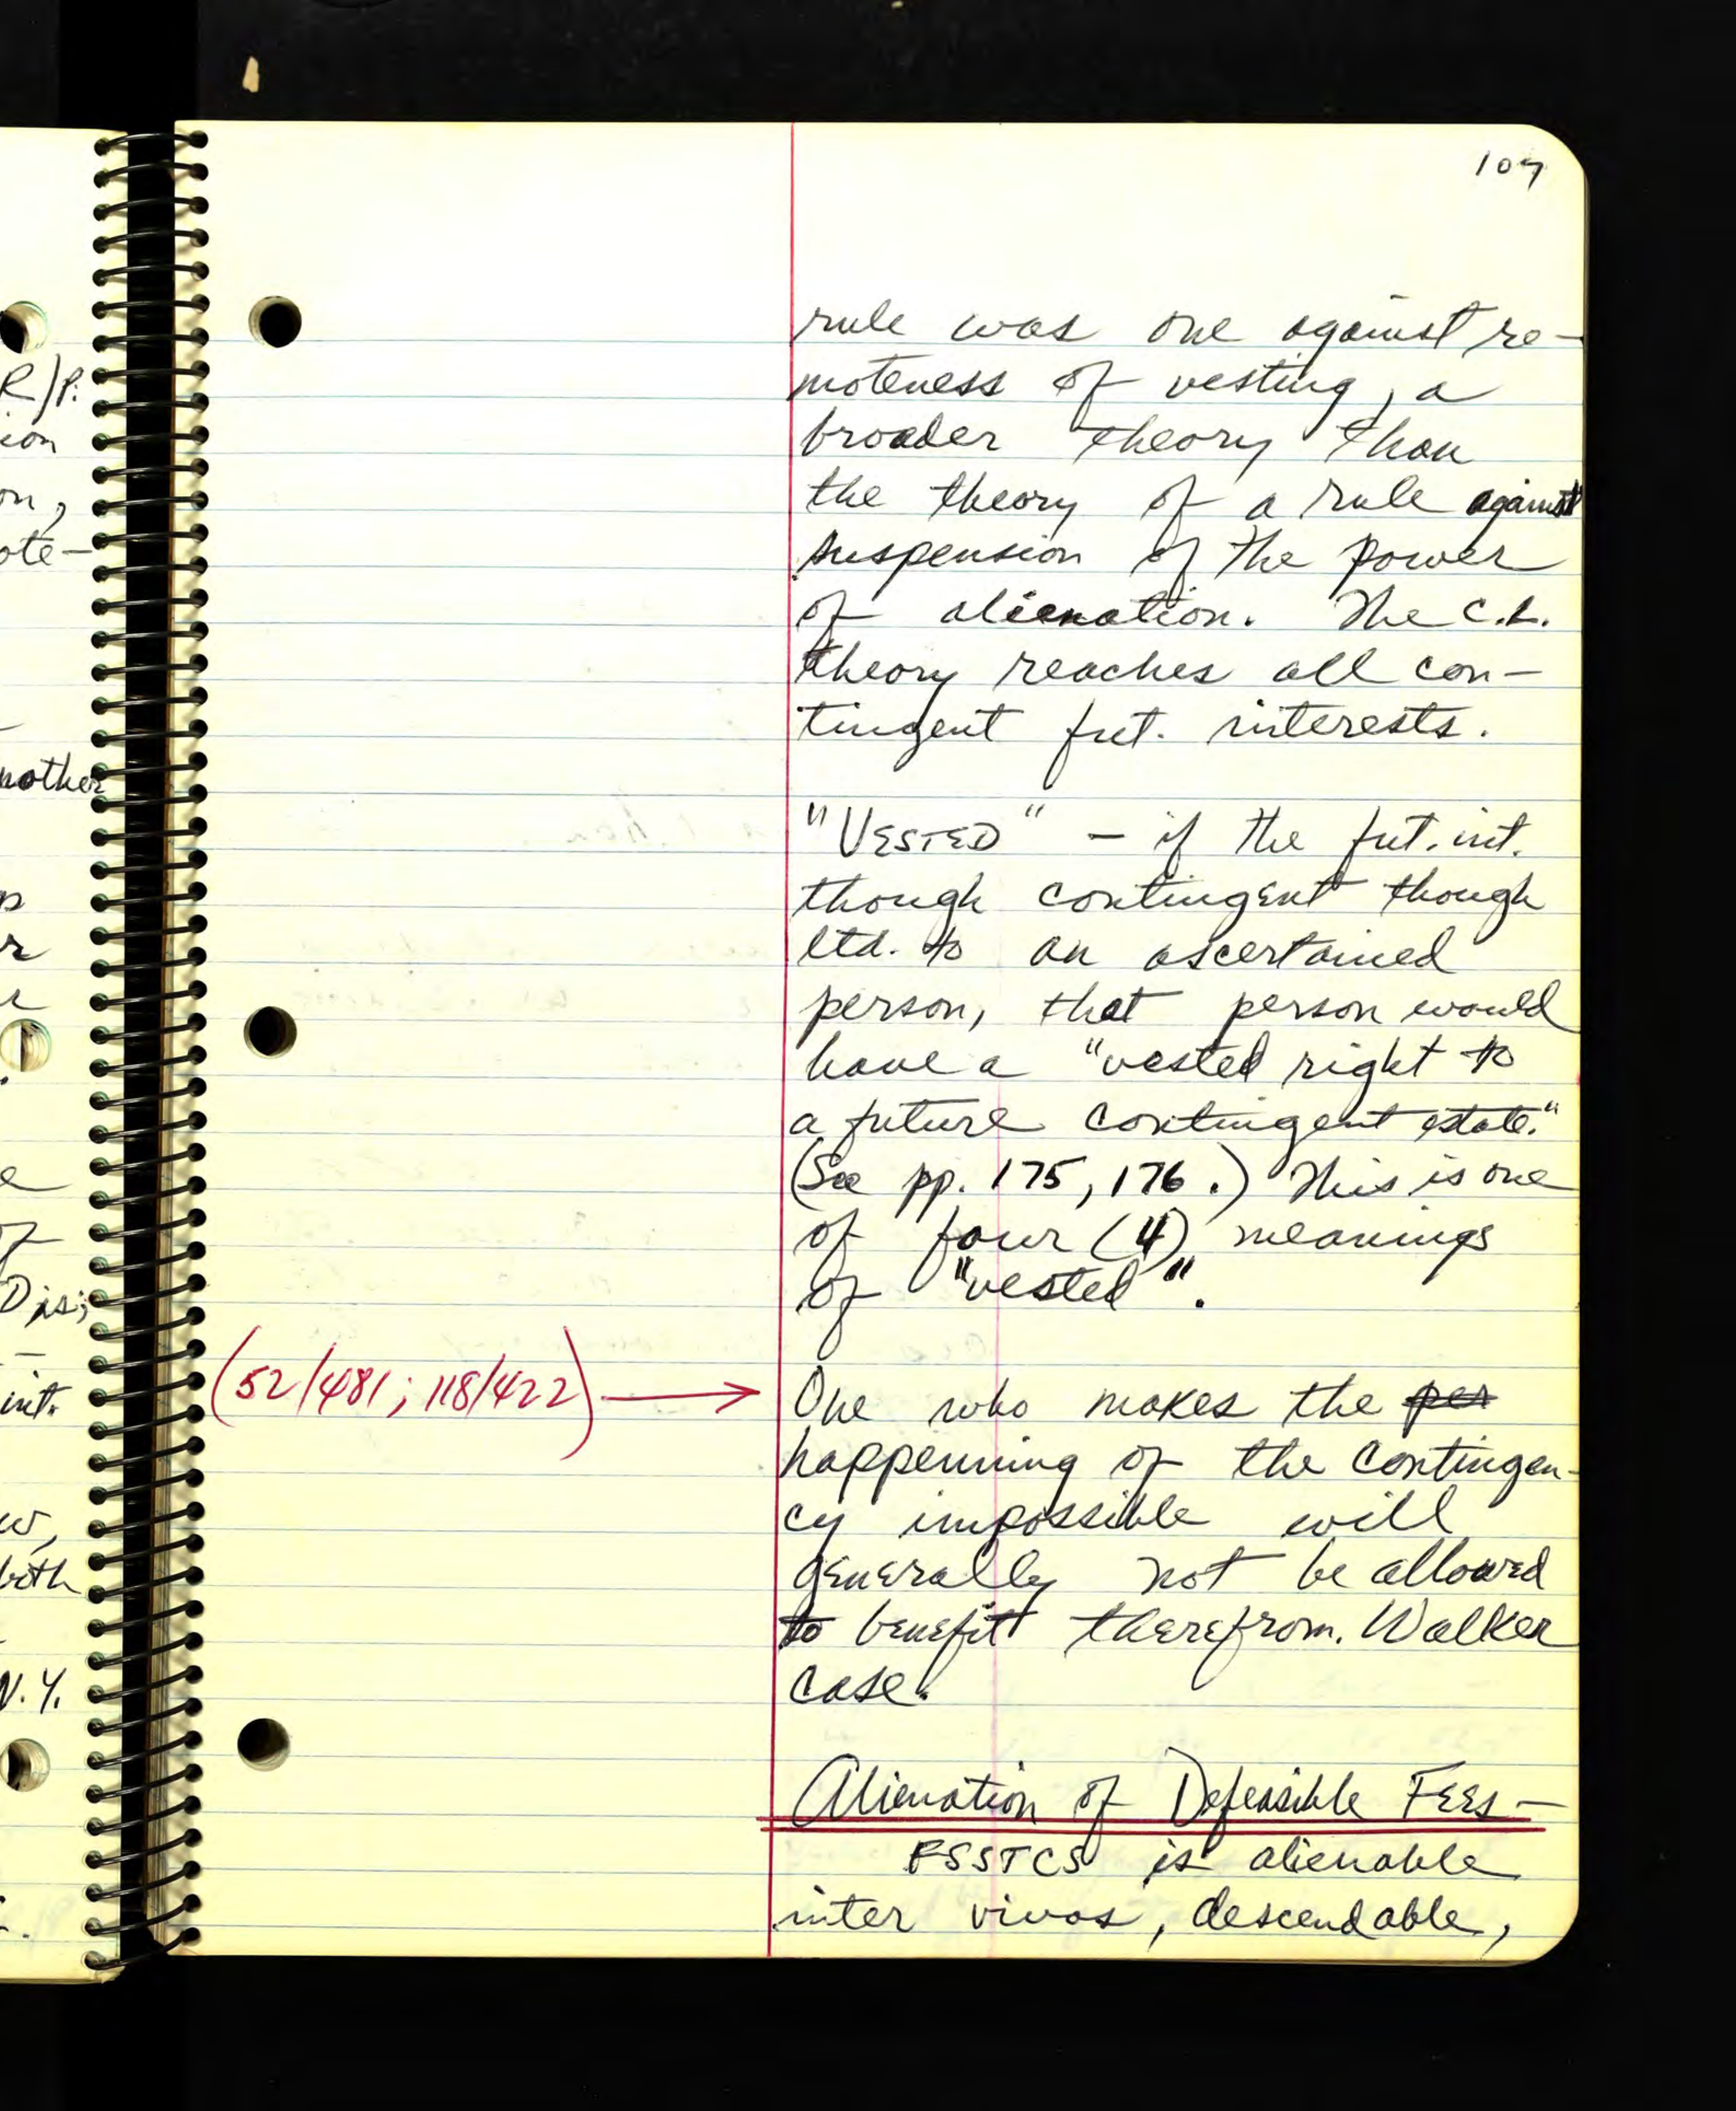 107
rule was one against re-
moteness of vesting, a
broader theory than
the theory of a rule against
suspension of the power
of alienation. The C.L.
theory reaches all con-
tingent fut. interests.
"VESTED" - if the fut. int.
though contingent though
ltd. to an ascertained
person, that person would
have a "vested right to
a future contingent estate."
(See pp. 175, 176.) This is one
of four (4) meanings
of "vested".
(52/481; 118/422) → One who makes the per
happenning of the contingen-
cy impossible will
generally not be allowed
to benefit therefrom. Walker
case.
Alienation of Defeasible Fees -
FSSTCS is alienable
inter vivos, descendable,
R/P.
ion
on,
ote-
nother
r
e
of
Dis;
int.
w,
both
N.Y.